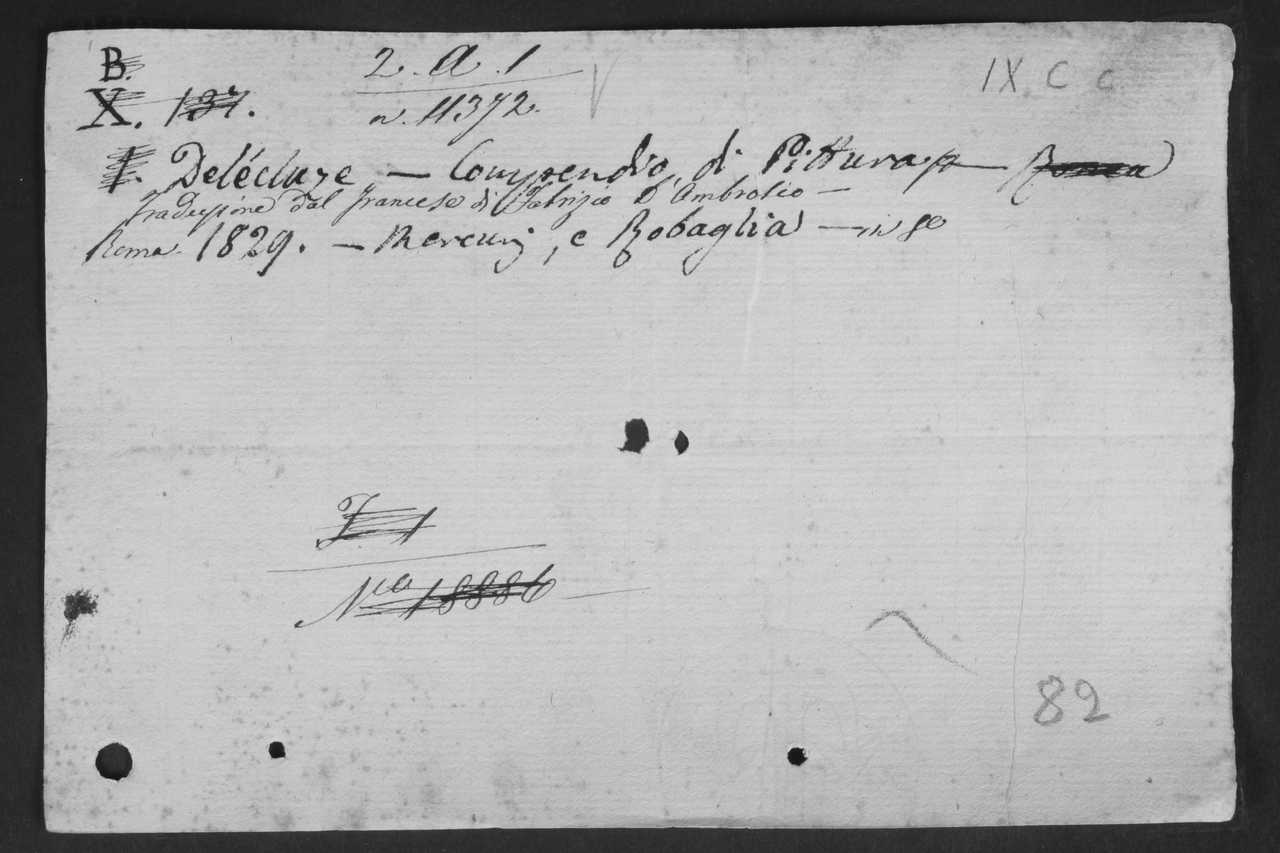 B.
X. 137.
2. a. 1
n. 11372.
IX. C c
I. Delécluze — Compendio di Pittura — Roma
Traduzione dal francese di Fabrizio D'Ambrosio —
Roma. 1829. — Mercurj, e Robaglia — in 8º
N.º 18886
82